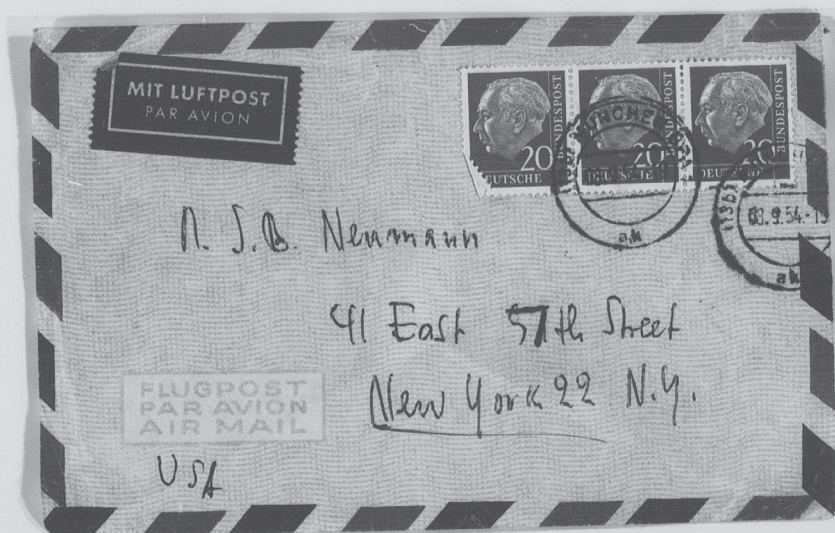 MIT LUFTPOST
PAR AVION
20 BUNDESPOST
DEUTSCHE
20 BUNDESPOST
DEUTSCHE
20 BUNDESPOST
DEUTSCHE
MÜNCHEN
ak
03.9.54-19
ak
J. B. Neumann
41 East 57th Street
New York 22 N.Y.
FLUGPOST
PAR AVION
AIR MAIL
USA